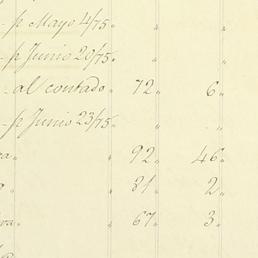 p Mayo 4/75 " " "
p Junio 20/75 " " "
al contado " 72 " 6 "
p Junio 23/75 " " "
" 92 " 46 "
" 81 " 2 "
" 67 " 3 "